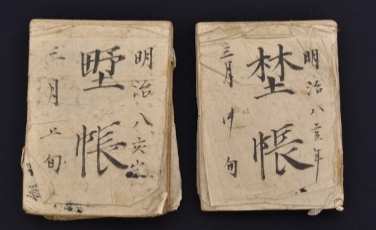 明治八亥年
墅帳
三月上旬
明治八亥年
埜帳
三月中旬